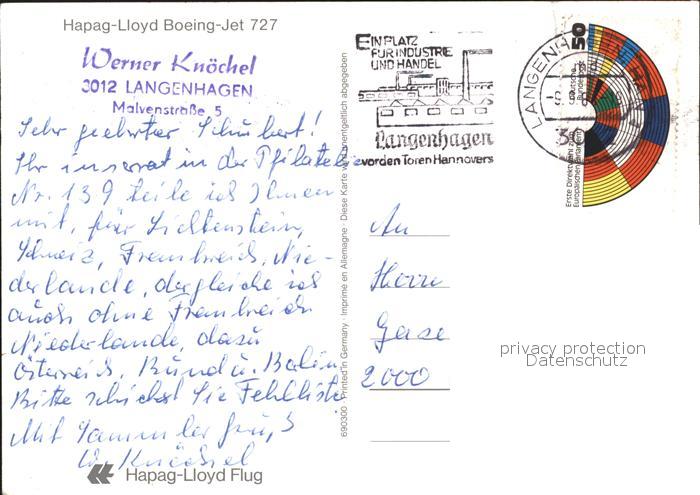 Hapag-Lloyd Boeing-Jet 727
Werner Knöchel
3012 LANGENHAGEN
Malvenstraße 5
Sehr geehrter Schubert!
Ihr inserat in der Philatelie
Nr. 139 teile ich Ihnen
mit, für Lichtenstein,
Schweiz, Frankreich, Nie-
derlande, dergleiche ich
auch ohne Frankreich
Niederlande, dazu
Österreich, Bund u. Berlin.
Bitte schickst Sie Fehlliste
Mit Sammlergruß
W. Knöchel
Hapag-Lloyd Flug
690300 · Printed in Germany · Imprimé en Allemagne · Diese Karte wird unentgeltlich abgegeben
EIN PLATZ
FÜR INDUSTRIE
UND HANDEL
Langenhagen
vor den Toren Hannovers
LANGENHAGEN
50
Deutsche Bundespost
Erste Direktwahl zum
Europäischen Parlament
An
Herrn
2000
privacy protection
Datenschutz